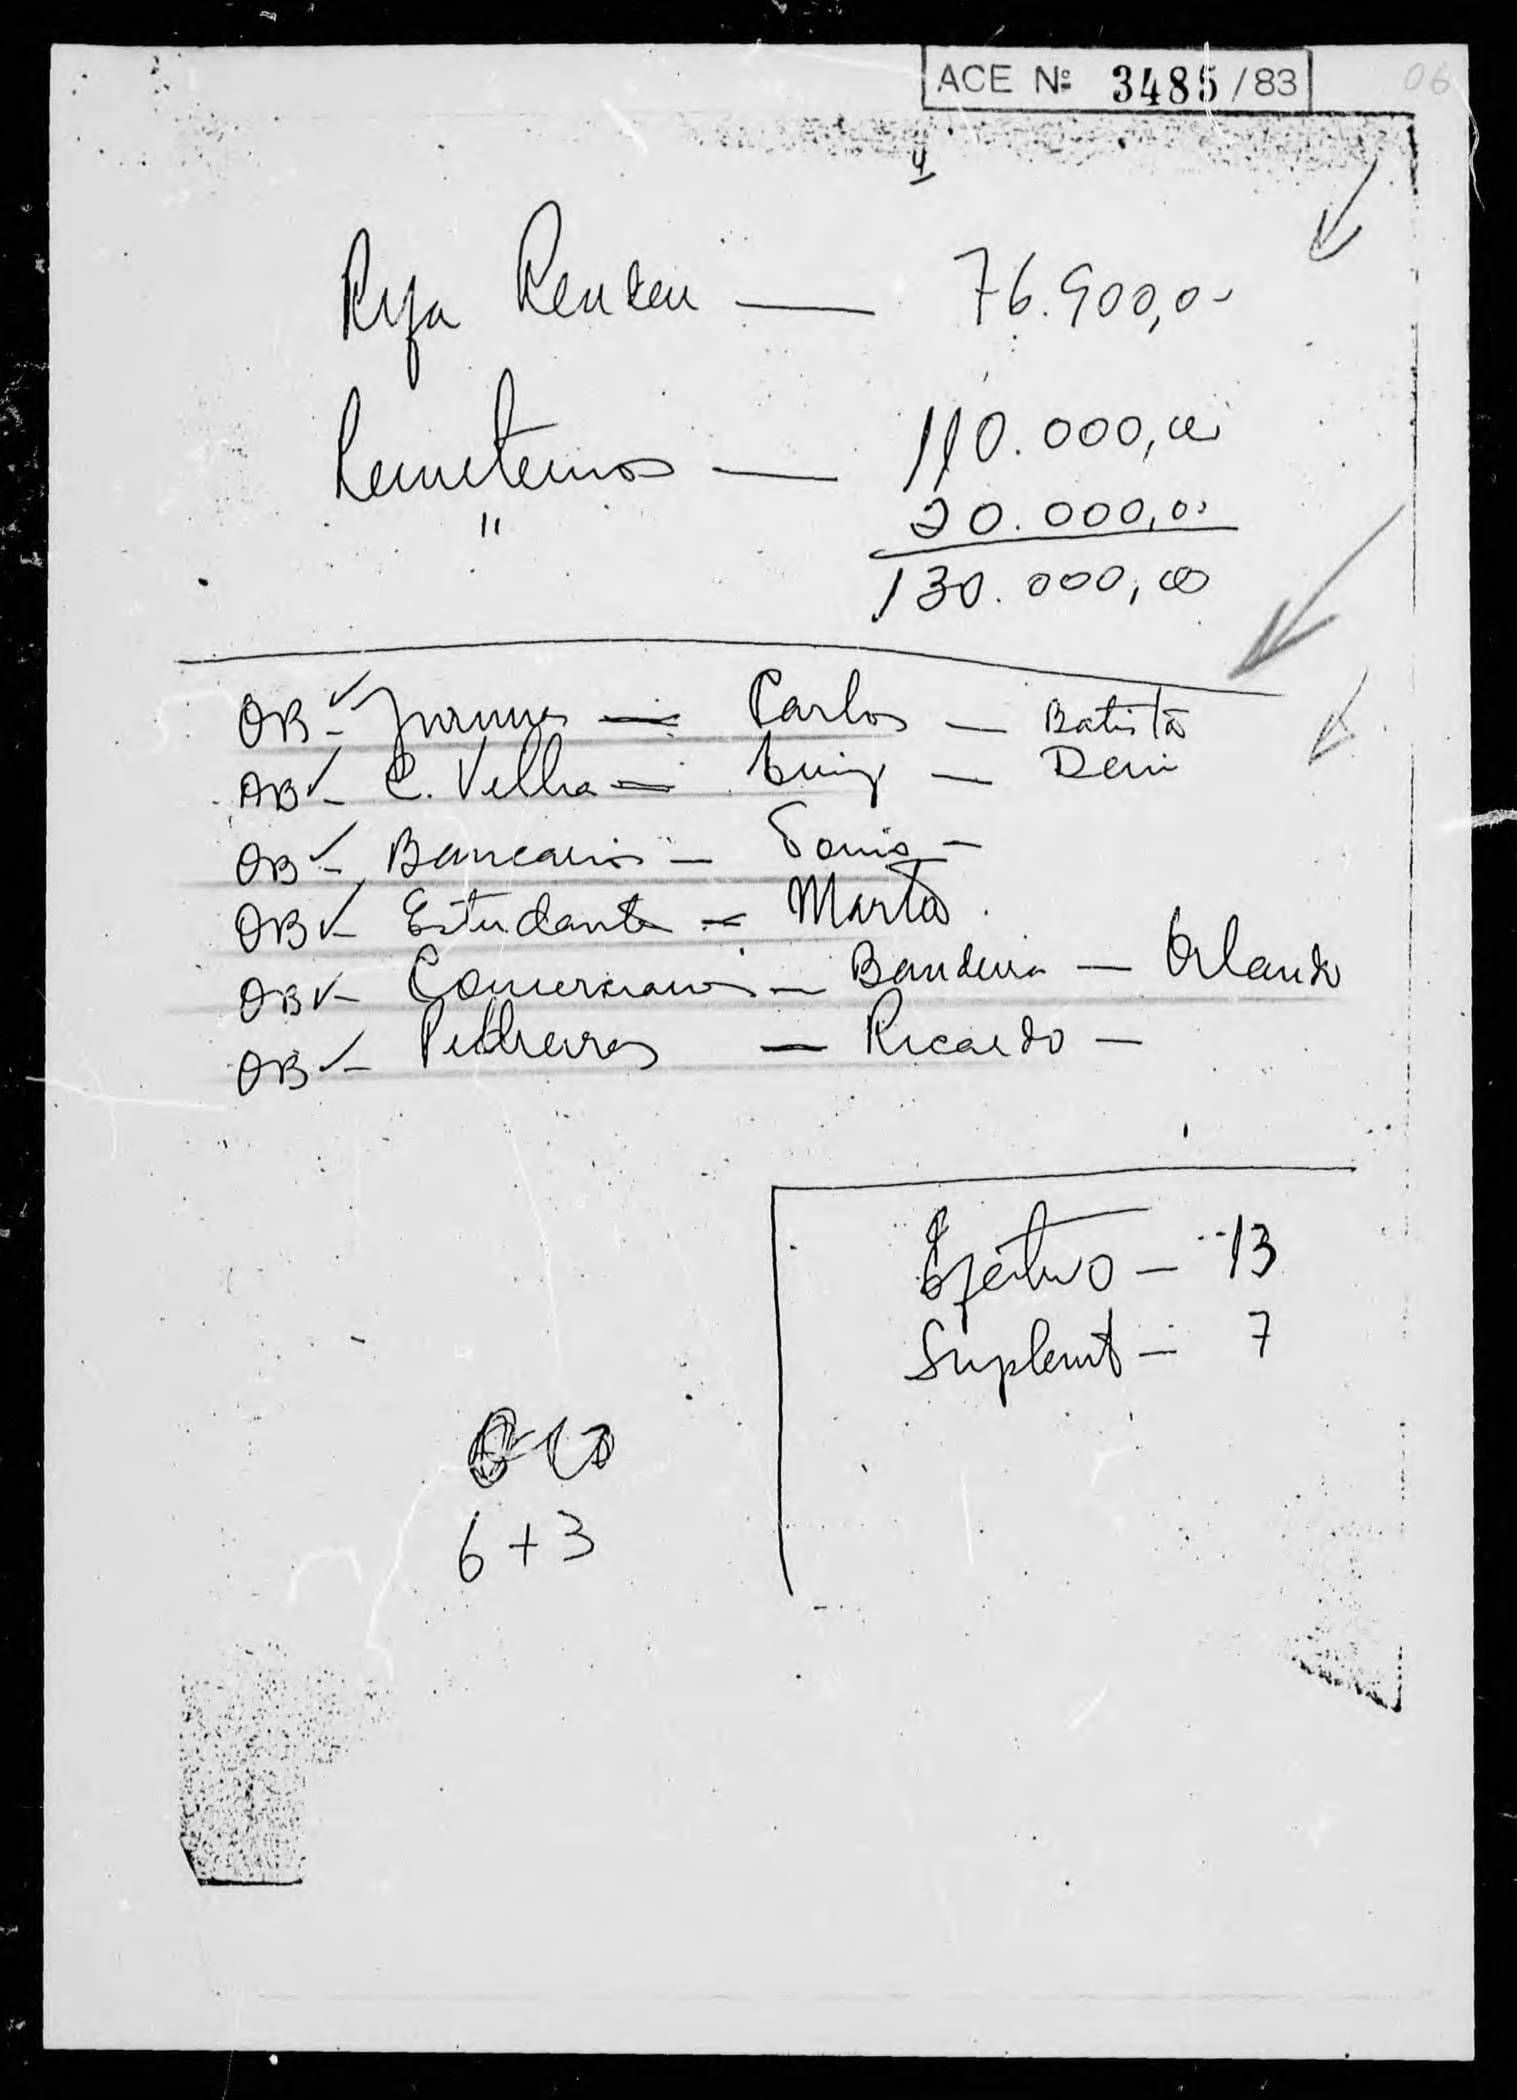 ACE Nº 3485/83
06
4
Rifa Rendeu — 76.900,00
Remetemos — 110.000,00
" 20.000,00
130.000,00
OB ✓ — — Carlos — Batista
OB ✓ — C. Velha — Luiz — Deni
OB ✓ — Bancarios — Tonio —
OB ✓ — Estudante — Marta
OB ✓ — Comerciarios — Bandeira — Orlando
OB ✓ — Pedreiros — Ricardo —
Efetivo — 13
Suplent — 7
6 + 3